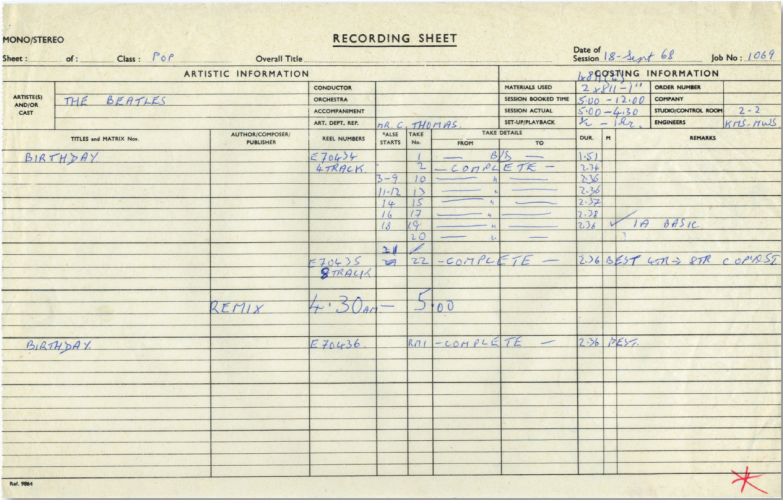 RECORDING SHEET
MONO/STEREO
Sheet : of : Class : POP Overall Title Date of Session 18-Sept 68 Job No : 1069
ARTISTIC INFORMATION COSTING INFORMATION
ARTISTE(S) AND/OR CAST THE BEATLES
CONDUCTOR
ORCHESTRA
ACCOMPANIMENT
ART. DEPT. REP. MR. C. THOMAS.
MATERIALS USED 2 x 811-1" ORDER NUMBER
SESSION BOOKED TIME 5:00 - 12:00 COMPANY
SESSION ACTUAL 5:00 - 4:30 STUDIO/CONTROL ROOM 2-2
SET-UP/PLAYBACK ½ - 1hr. ENGINEERS KHS-MWS
TITLES and MATRIX Nos. AUTHOR/COMPOSER/PUBLISHER REEL NUMBERS FALSE STARTS TAKE No. TAKE DETAILS FROM TO DUR. M REMARKS
BIRTHDAY E70434 1 — B/D — 1.51
4 TRACK 2 — COMPLETE — 2.34
3-9 10 — " — 2.36
11-12 13 — " — 2.36
14 15 — " — 2.37
16 17 — " — 2.38
18 19 — " — 2.36 ✓ 1A BASIC
20 — " —
21
E70435 22 - COMPLETE — 2.36 BEST 4TR → 8TR
8 TRACK
REMIX 4.30AM — 5.00
BIRTHDAY E70436. RM1 - COMPLETE — 2.36 BEST.
Ref. 9884